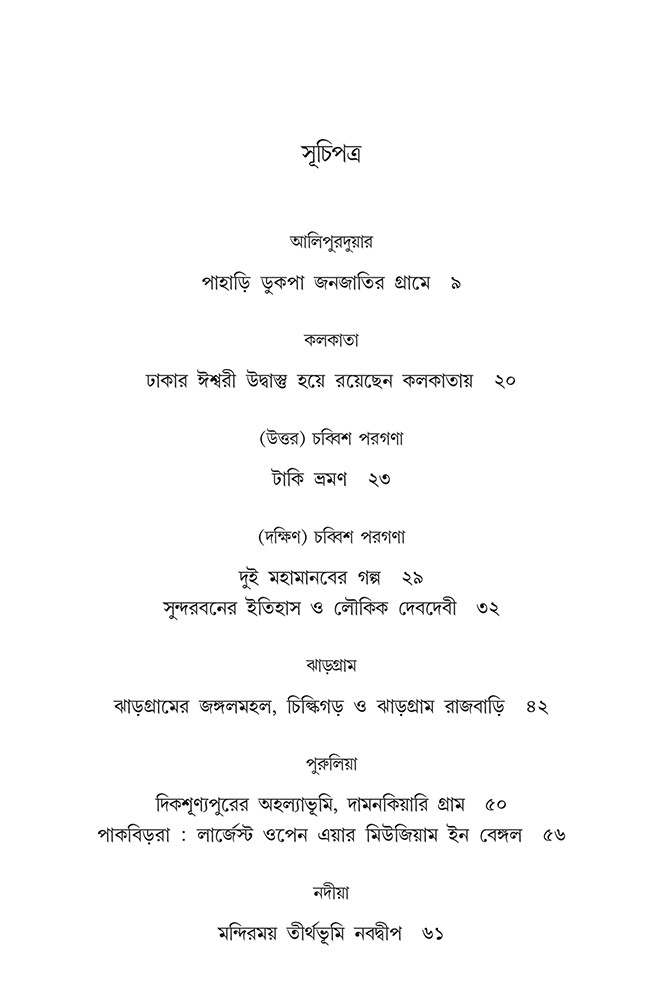 সূচিপত্র
আলিপুরদুয়ার
পাহাড়ি ডুকপা জনজাতির গ্রামে ৯
কলকাতা
ঢাকার ঈশ্বরী উদ্বাস্তু হয়ে রয়েছেন কলকাতায় ২০
(উত্তর) চব্বিশ পরগণা
টাকি ভ্রমণ ২৩
(দক্ষিণ) চব্বিশ পরগণা
দুই মহামানবের গল্প ২৯
সুন্দরবনের ইতিহাস ও লৌকিক দেবদেবী ৩২
ঝাড়গ্রাম
ঝাড়গ্রামের জঙ্গলমহল, চিল্কিগড় ও ঝাড়গ্রাম রাজবাড়ি ৪২
পুরুলিয়া
দিকশূণ্যপুরের অহল্যাভূমি, দামনকিয়ারি গ্রাম ৫০
পাকবিড়রা : লার্জেস্ট ওপেন এয়ার মিউজিয়াম ইন বেঙ্গল ৫৬
নদীয়া
মন্দিরময় তীর্থভূমি নবদ্বীপ ৬১